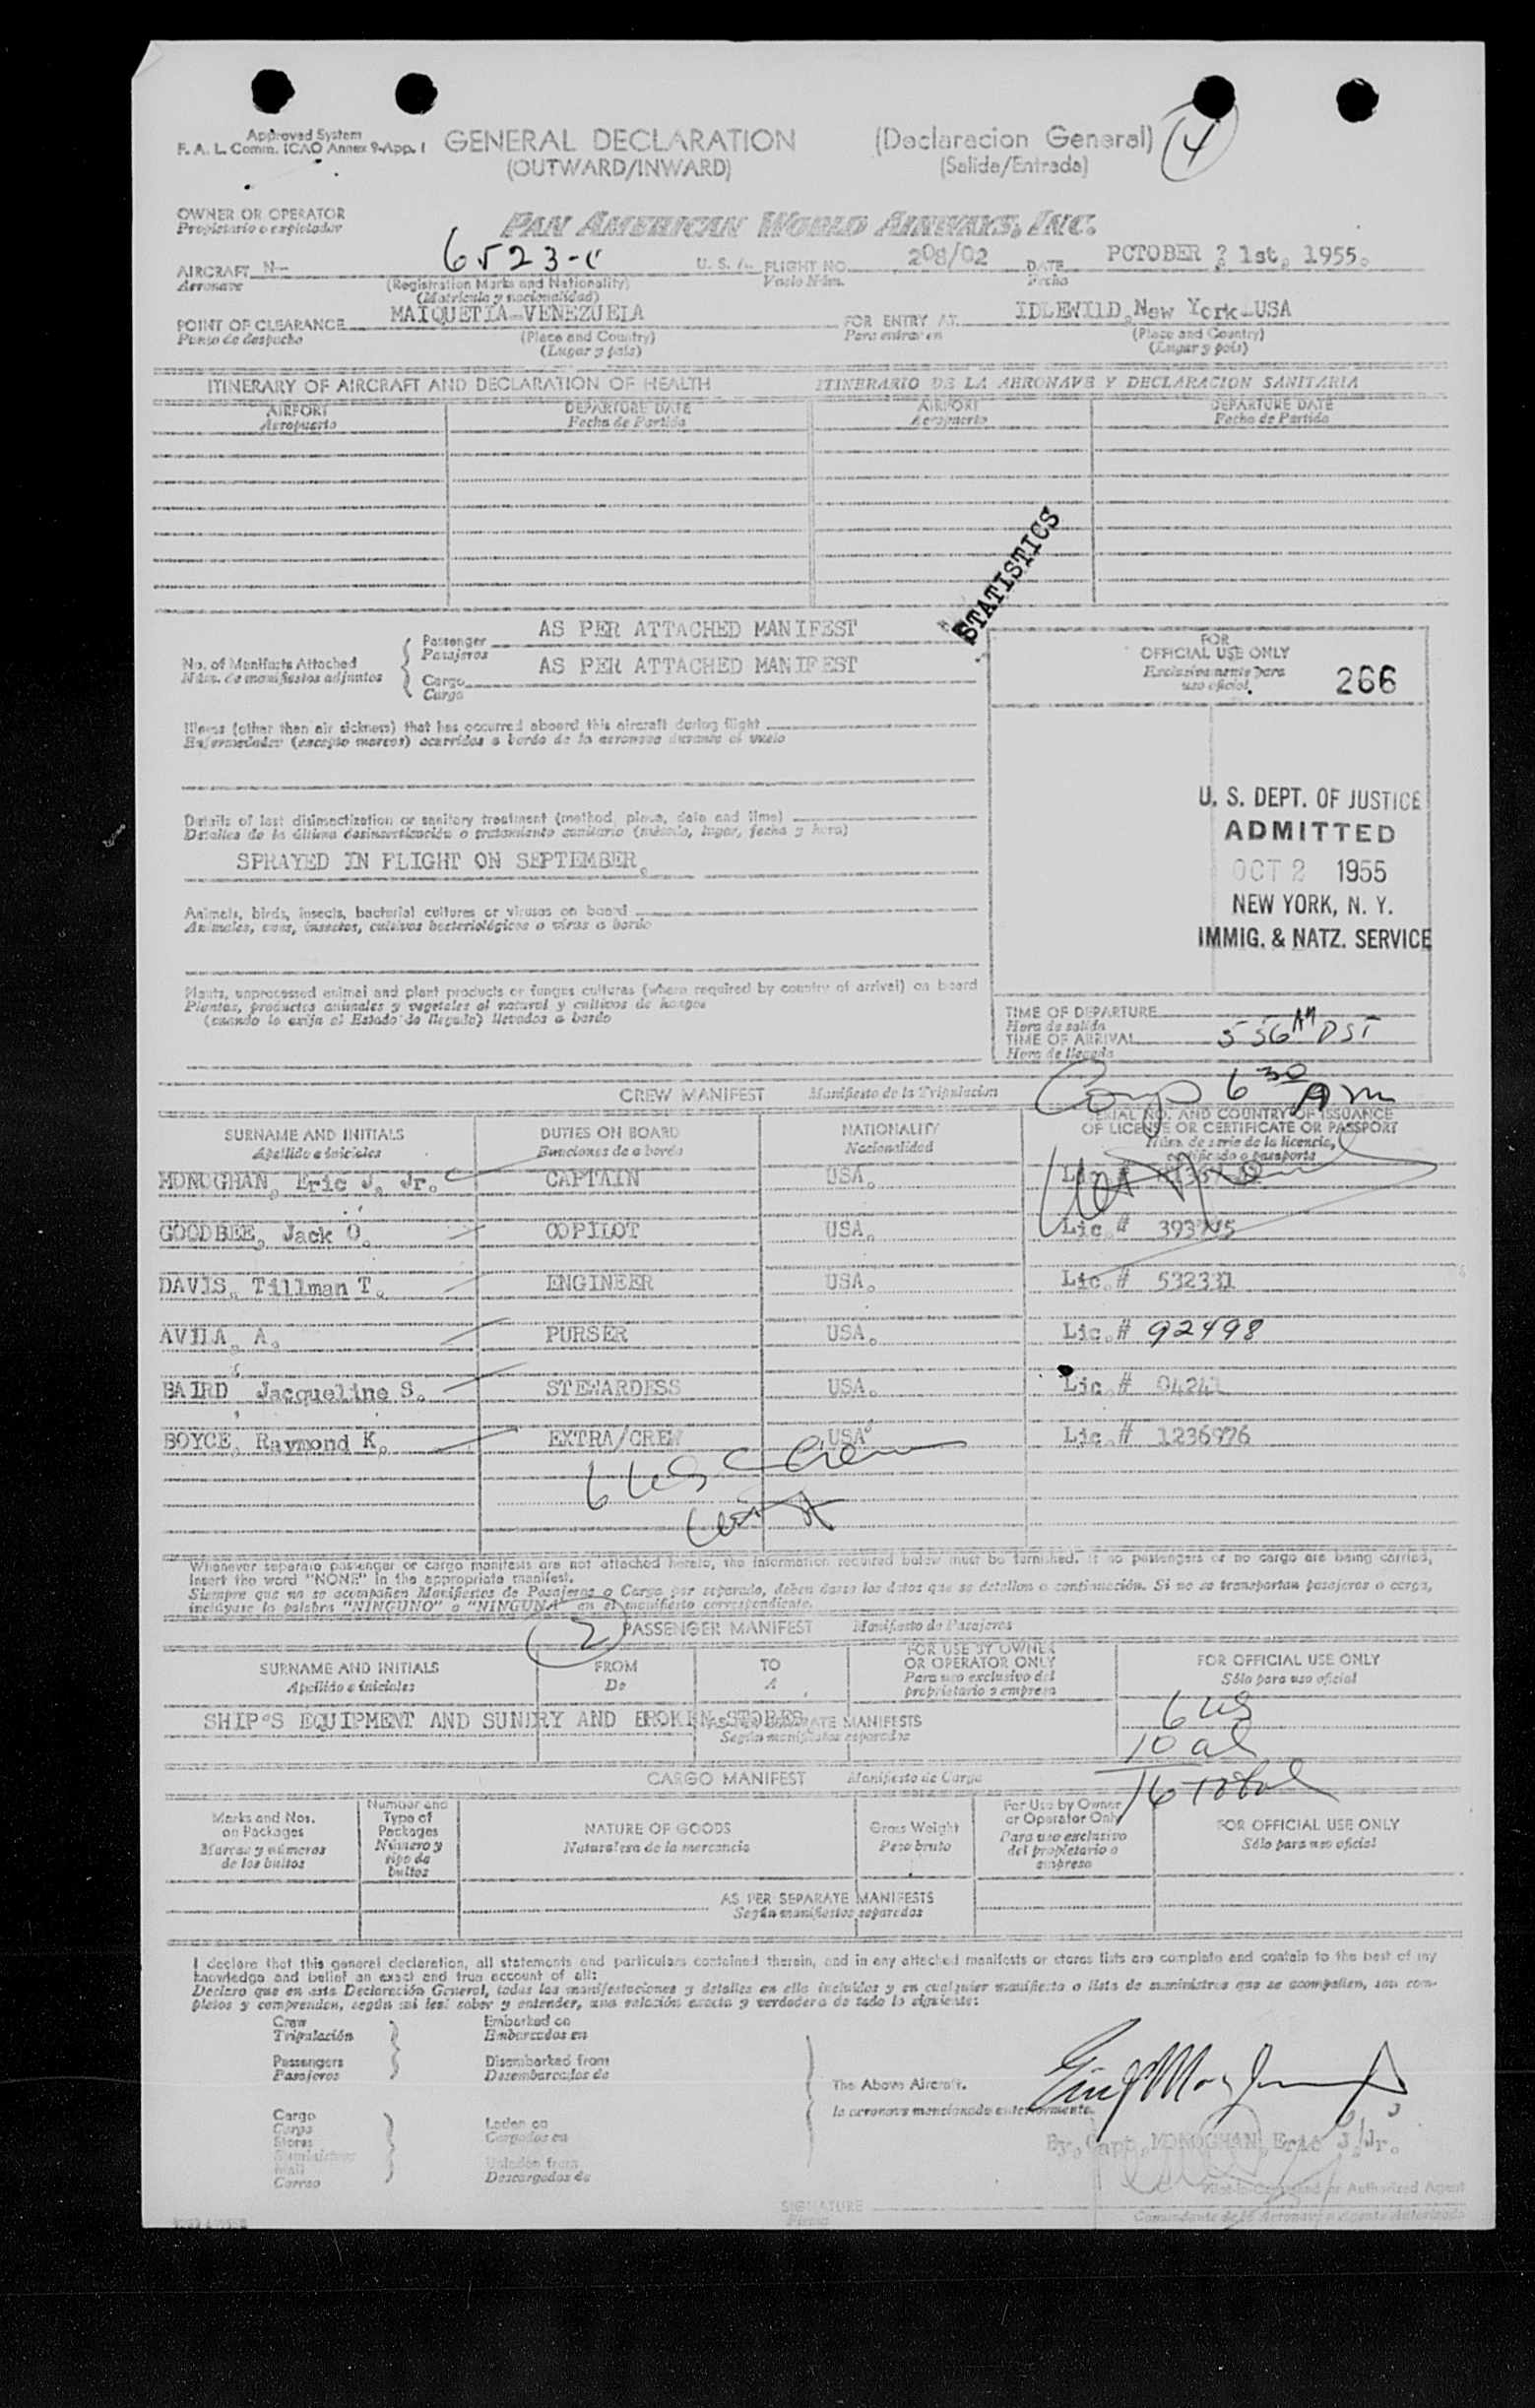 Approved System
F. A. L. Comm. ICAO Annex 9-App. I
GENERAL DECLARATION (Declaracion General) 4
(OUTWARD/INWARD) (Salida/Entrada)
OWNER OR OPERATOR PAN AMERICAN WORLD AIRWAYS, INC.
Propietario o explotador
AIRCRAFT N- 6523-C U. S. A. FLIGHT NO. 208/02 DATE PCTOBER 1st, 1955.
Aeronave (Registration Marks and Nationality) Vuelo Núm. Fecha
(Matricula y nacionalidad)
POINT OF CLEARANCE MAIQUETIA-VENEZUELA FOR ENTRY AT IDLEWILD, New York-USA
Punto de despacho (Place and Country) Para entrar en (Place and Country)
(Lugar y pais) (Lugar y pais)
ITINERARY OF AIRCRAFT AND DECLARATION OF HEALTH ITINERARIO DE LA AERONAVE Y DECLARACION SANITARIA
AIRPORT DEPARTURE DATE AIRPORT DEPARTURE DATE
Aeropuerto Fecha de Partida Aeropuerto Fecha de Partida
STATISTICS
No. of Manifests Attached
Núm. de manifiestos adjuntos
Passenger AS PER ATTACHED MANIFEST
Pasajeros
Cargo AS PER ATTACHED MANIFEST
Carga
FOR
OFFICIAL USE ONLY
Exclusivamente para
uso oficial
266
Illness (other than air sickness) that has occurred aboard this aircraft during flight
Enfermedades (excepto mareos) ocurridas a bordo de la aeronave durante el vuelo
Details of last disinsectization or sanitary treatment (method, place, date and time)
Detalles de la última desinsectización o tratamiento sanitario (método, lugar, fecha y hora)
SPRAYED IN FLIGHT ON SEPTEMBER.
U. S. DEPT. OF JUSTICE
ADMITTED
OCT 2 1955
NEW YORK, N. Y.
IMMIG. & NATZ. SERVICE
Animals, birds, insects, bacterial cultures or viruses on board
Animales, aves, insectos, cultivos bacteriológicos o virus a bordo
Plants, unprocessed animal and plant products or fungus cultures (where required by country of arrival) on board
Plantas, productos animales y vegetales al natural y cultivos de hongos
(cuando lo exija el Estado de llegada) llevados a bordo
TIME OF DEPARTURE
Hora de salida
TIME OF ARRIVAL 5 56 AM DST
Hora de llegada
6 30 Am
CREW MANIFEST Manifiesto de la Tripulacion
SURNAME AND INITIALS DUTIES ON BOARD NATIONALITY SERIAL NO. AND COUNTRY OF ISSUANCE
OF LICENSE OR CERTIFICATE OR PASSPORT
Apellido e iniciales Funciones de a bordo Nacionalidad Núm. de serie de la licencia,
certificado o pasaporte
MONOGHAN, Eric J. Jr. CAPTAIN USA.
GOODBEE, Jack O. COPILOT USA. Lic.#
DAVIS, Tillman T. ENGINEER USA. Lic.# 532331
AVILA, A. PURSER USA. Lic.# 92498
BAIRD, Jacqueline S. STEWARDESS USA. Lic.#
BOYCE, Raymond K. EXTRA/CREW USA Lic.# 1236976
6 US Crew
Whenever separate passenger or cargo manifests are not attached hereto, the information required below must be furnished. If no passengers or no cargo are being carried,
insert the word "NONE" in the appropriate manifest.
Siempre que no se acompañen Manifiestos de Pasajeros o Carga por separado, deben darse los datos que se detallan a continuación. Si no se transportan pasajeros o carga,
inclúyase la palabra "NINGUNO" o "NINGUNA" en el manifiesto correspondiente.
2 PASSENGER MANIFEST Manifiesto de Pasajeros
SURNAME AND INITIALS FROM TO FOR USE BY OWNER
OR OPERATOR ONLY FOR OFFICIAL USE ONLY
Apellido e iniciales De A Para uso exclusivo del
propietario o empresa Sólo para uso oficial
SHIP'S EQUIPMENT AND SUNDRY AND BROKEN STORES
AS PER SEPARATE MANIFESTS
Según manifiestos separados
6 US
10 al
16 total
CARGO MANIFEST Manifiesto de Carga
Marks and Nos.
on Packages
Marcas y números
de los bultos
Number and
Type of
Packages
Número y
tipo de
bultos
NATURE OF GOODS
Naturaleza de la mercancia
Gross Weight
Peso bruto
For Use by Owner
or Operator Only
Para uso exclusivo
del propietario o
empresa
FOR OFFICIAL USE ONLY
Sólo para uso oficial
AS PER SEPARATE MANIFESTS
Según manifiestos separados
I declare that this general declaration, all statements and particulars contained therein, and in any attached manifests or stores lists are complete and contain to the best of my
knowledge and belief an exact and true account of all:
Declaro que en esta Declaración General, todas las manifestaciones y detalles en ella incluidos y en cualquier manifiesto o lista de suministros que se acompañen, son com-
pletos y comprenden, según mi leal saber y entender, una relación exacta y verdadera de todo lo siguiente:
Crew Embarked on
Tripulación Embarcados en
Passengers Disembarked from
Pasajeros Desembarcados de
The Above Aircraft.
la aeronave mencionada anteriormente.
Cargo Laden on
Carga Cargados en
Stores
Suministros
Mail Unladen from
Correo Descargados de
By, Capt. MONOGHAN, Eric J. Jr.
Pilot-in-Command or Authorized Agent
SIGNATURE
Firma
Comandante de la Aeronave o Agente Autorizado